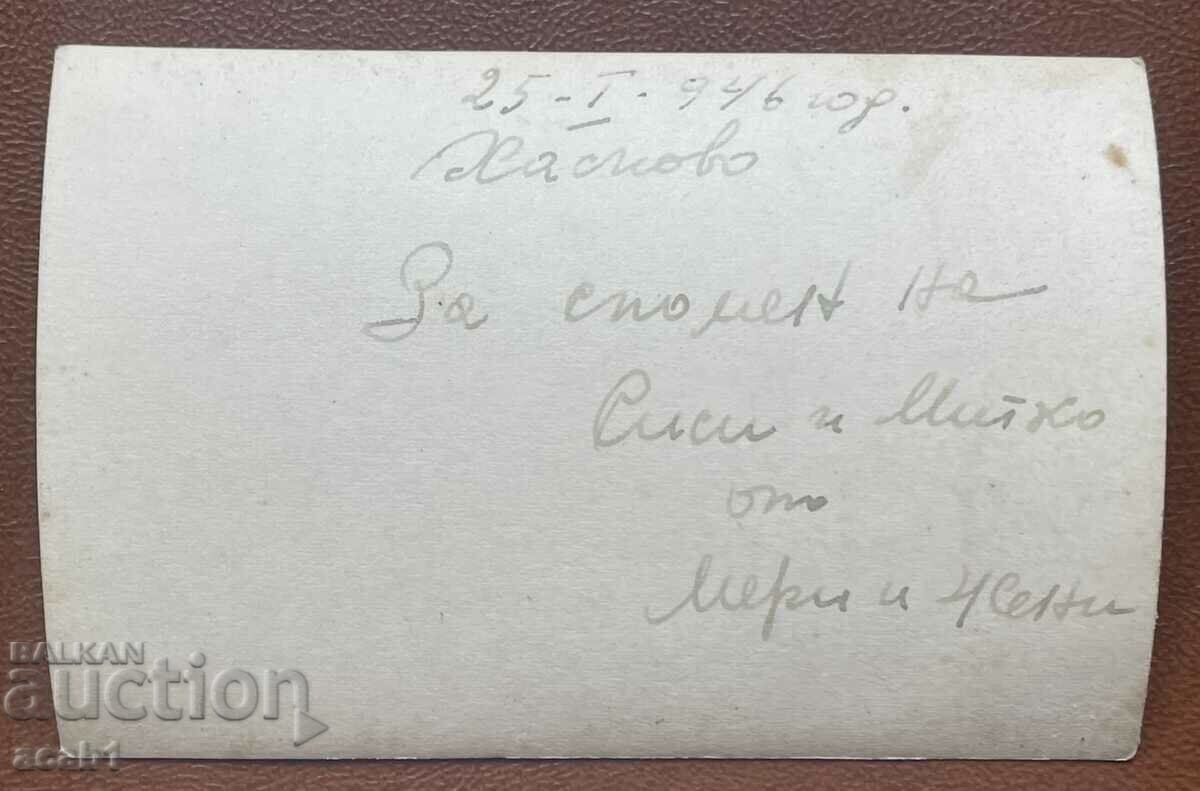 25-I-946 год.
Хасково
За спомен на
Сиси и Митко
от
Мери и Жени
BALKAN
auction
acab1